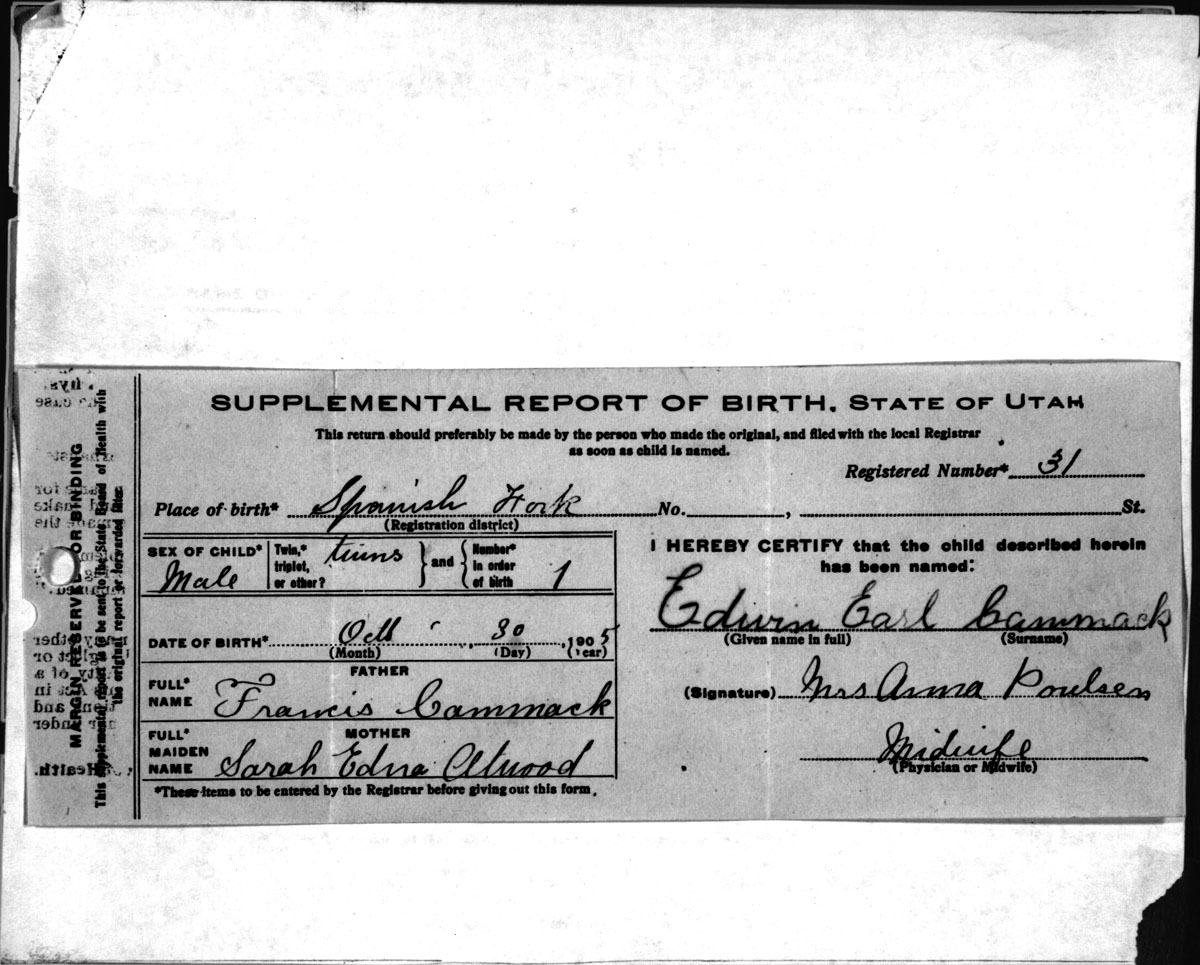 SUPPLEMENTAL REPORT OF BIRTH, STATE OF UTAH
This return should preferably be made by the person who made the original, and filed with the local Registrar
as soon as child is named.
Registered Number* 31
Place of birth* Spanish Fork No. , St.
(Registration district)
SEX OF CHILD* Male
Twin,* triplet, or other? twins
and
Number* in order of birth 1
DATE OF BIRTH* Oct 30 , 1905
(Month) (Day) (Year)
FATHER
FULL* NAME Francis Cammack
MOTHER
FULL* MAIDEN NAME Sarah Edna Atwood
*These items to be entered by the Registrar before giving out this form.
I HEREBY CERTIFY that the child described herein
has been named:
Edwin Earl Cammack
(Given name in full) (Surname)
(Signature) Mrs Anna Poulsen
Midwife
(Physician or Midwife)
MARGIN RESERVED FOR BINDING
This supplemental report is to be sent to the State Board of Health with
the original report or forwarded later.